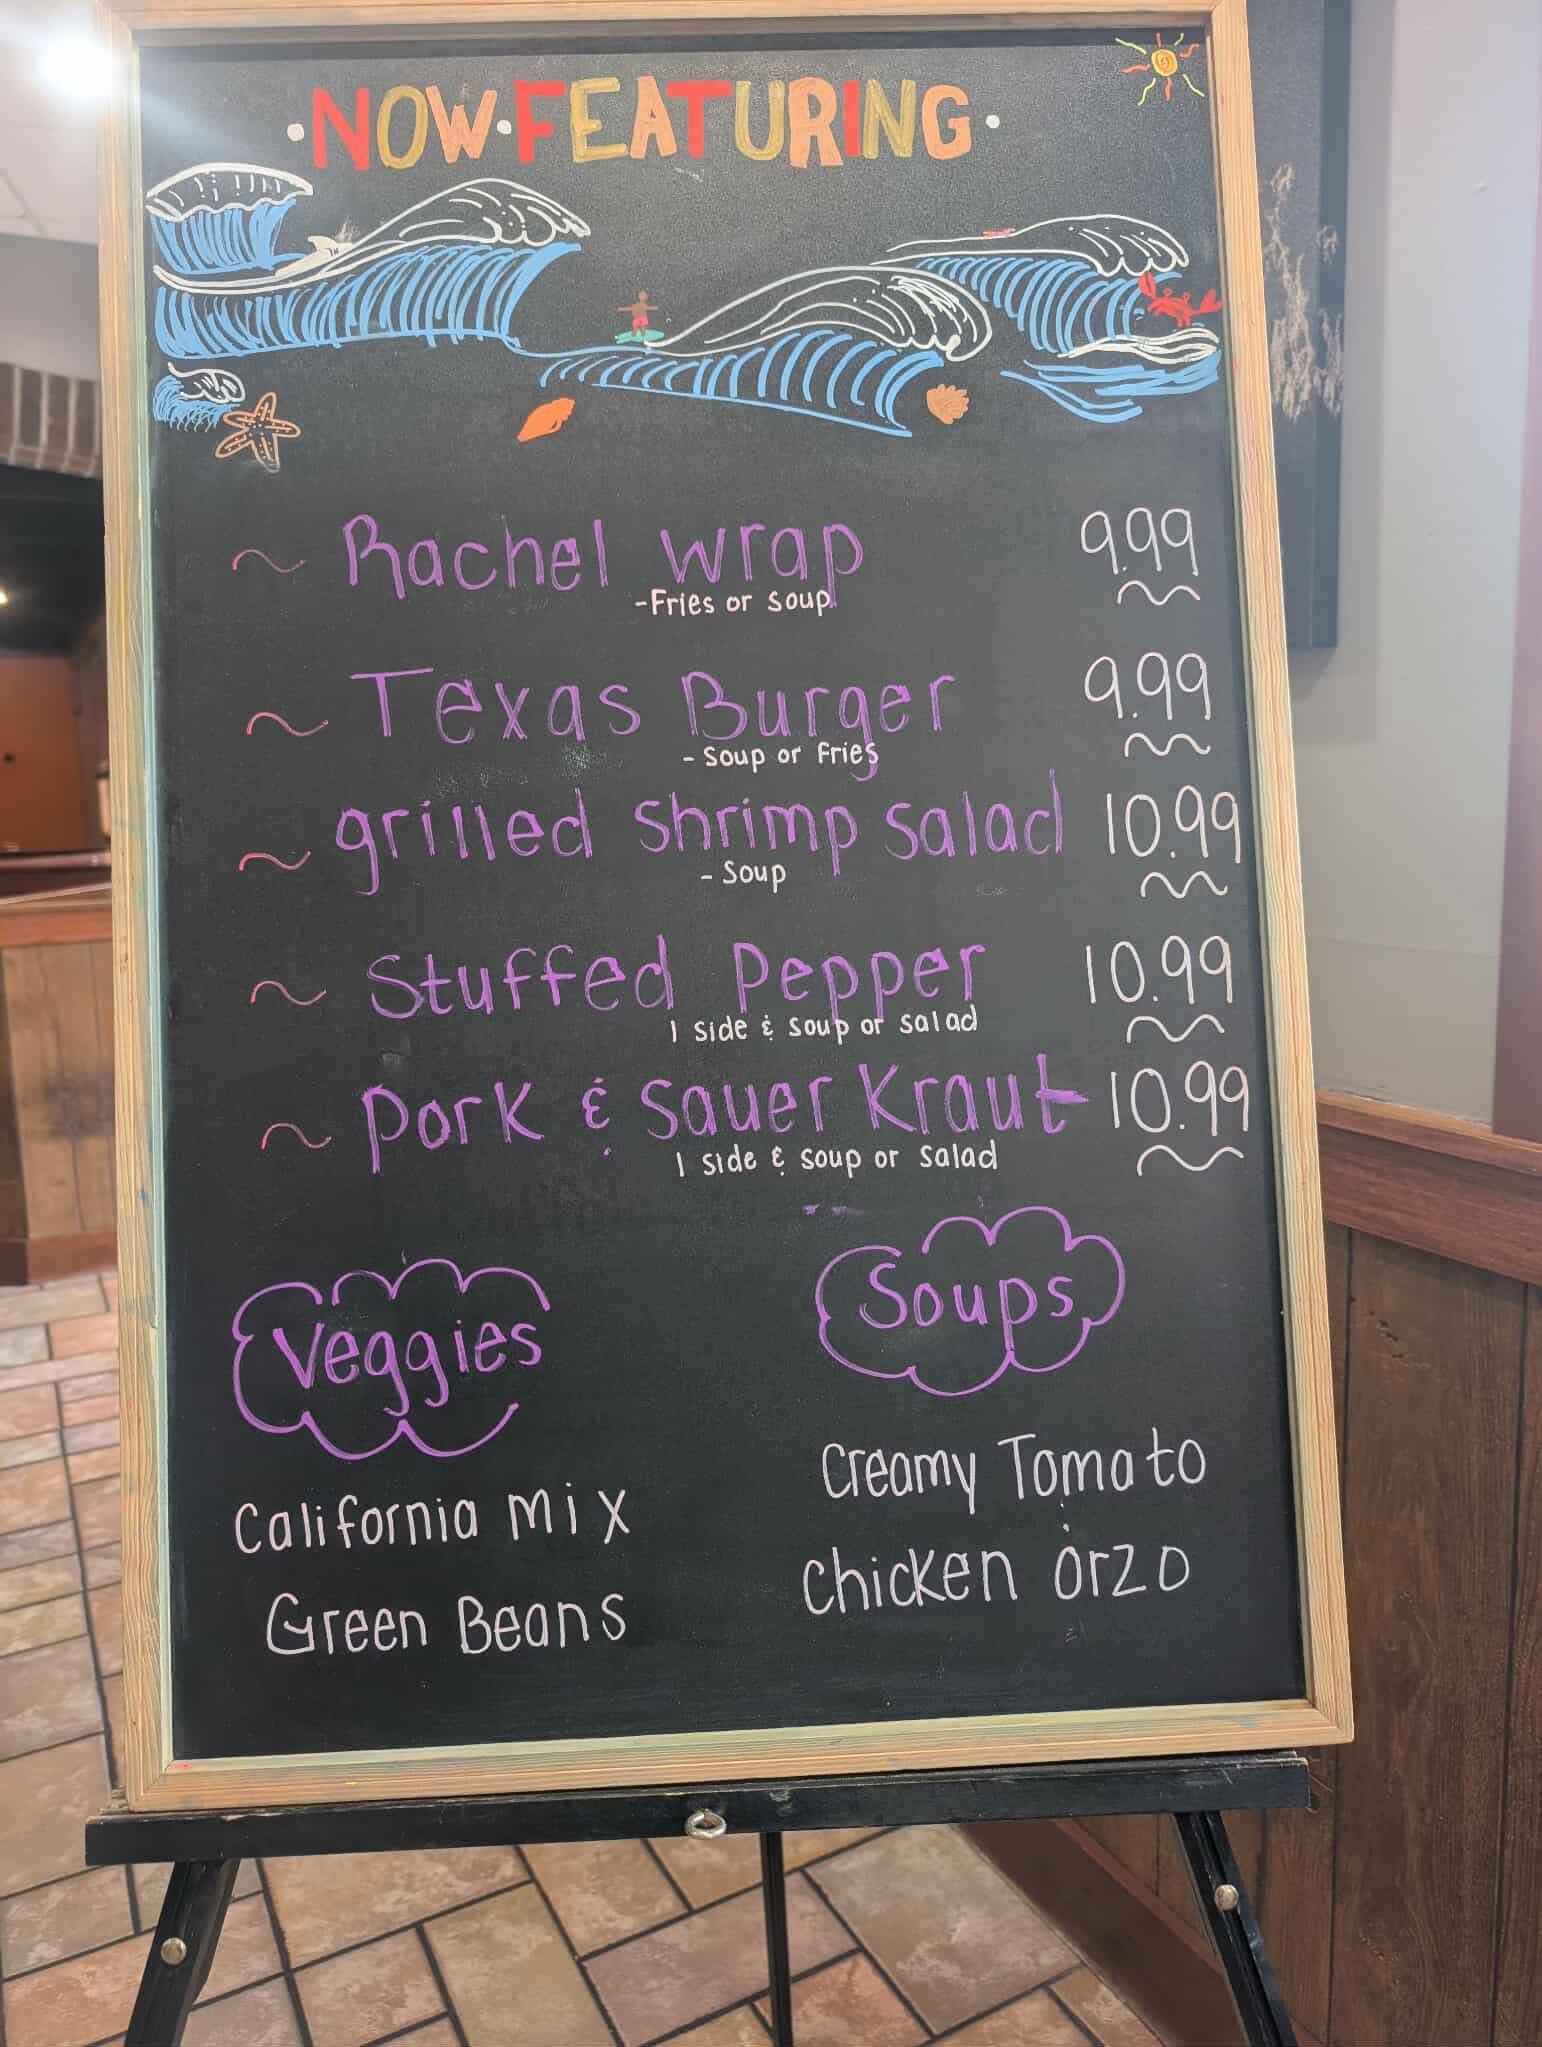 • NOW • FEATURING •
~ Rachel wrap 9.99
- Fries or soup
~ Texas Burger 9.99
- Soup or Fries
~ grilled shrimp salad 10.99
- Soup
~ Stuffed Pepper 10.99
1 side & soup or salad
~ Pork & Sauer Kraut 10.99
1 side & soup or salad
Veggies
California mix
Green Beans
Soups
Creamy Tomato
Chicken orzo